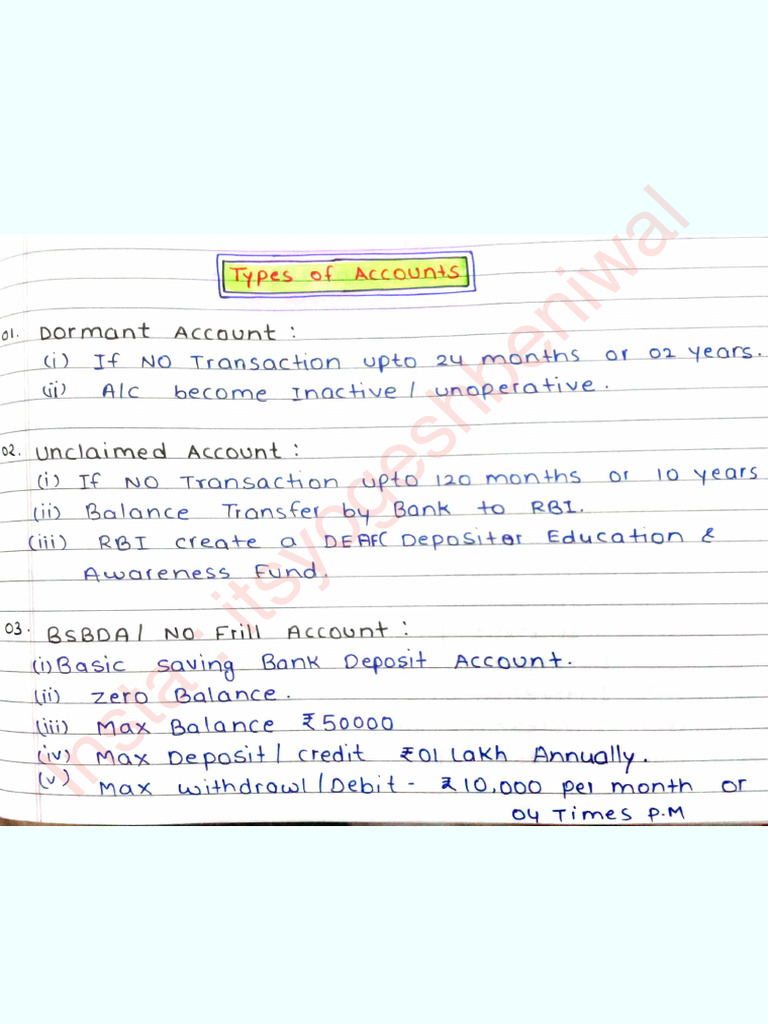 Types of Accounts
01. Dormant Account :
(i) If NO Transaction upto 24 months or 02 years.
(ii) A/C become Inactive / unoperative.
02. Unclaimed Account :
(i) If NO Transaction upto 120 months or 10 years
(ii) Balance Transfer by Bank to RBI.
(iii) RBI create a DEAFC Depositor Education &
Awareness Fund.
03. BSBDA / NO Frill Account :
(i) Basic saving Bank Deposit Account.
(ii) zero Balance.
(iii) Max Balance ₹50000
(iv) Max Deposit / credit ₹01 Lakh Annually.
(v) Max withdrawl / Debit - ₹10,000 per month or
04 Times P.M
Insta : itsyogeshbeniwal